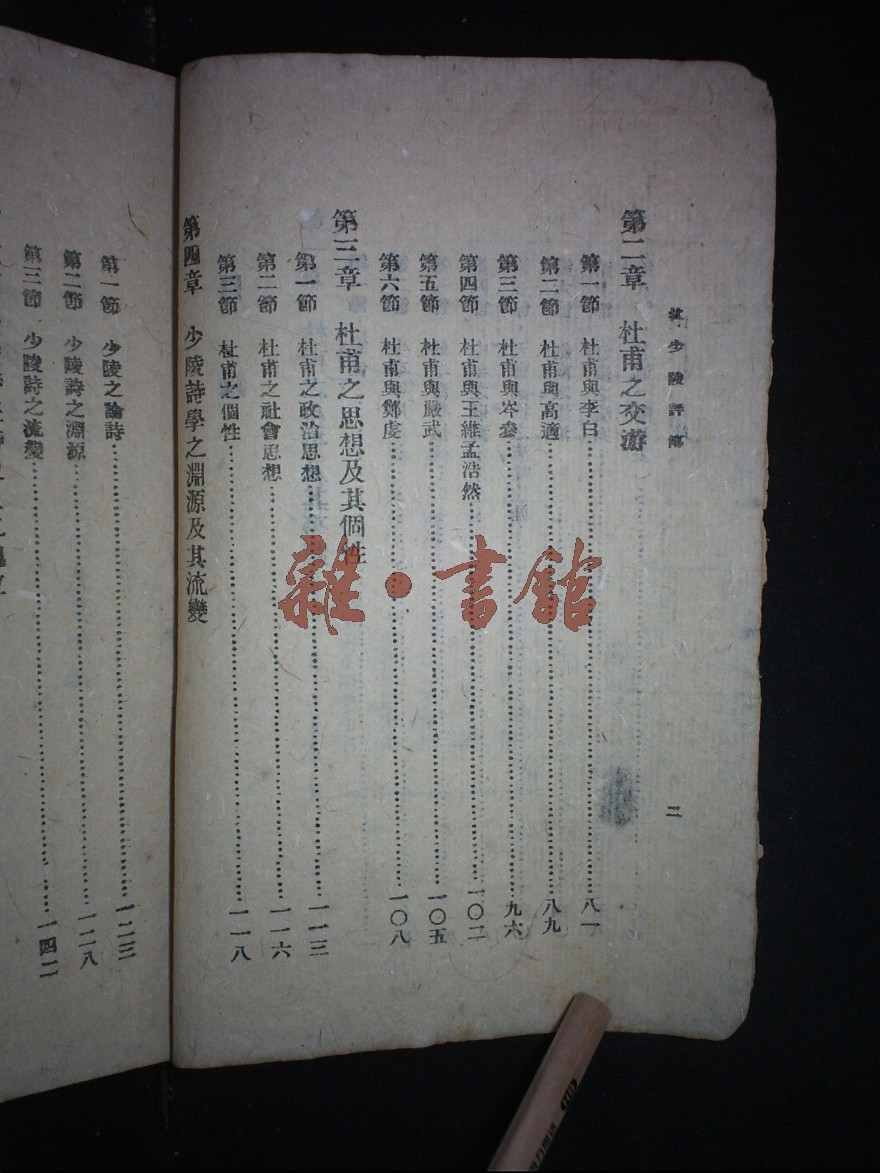 杜少陵評傳
二
第二章 杜甫之交游
第一節 杜甫與李白……八一
第二節 杜甫與高適……八九
第三節 杜甫與岑參……九六
第四節 杜甫與王維孟浩然……一〇二
第五節 杜甫與嚴武……一〇五
第六節 杜甫與鄭虔……一〇八
第三章 杜甫之思想及其個性
第一節 杜甫之政治思想……一一三
第二節 杜甫之社會思想……一一六
第三節 杜甫之個性……一一八
第四章 少陵詩學之淵源及其流變
第一節 少陵之論詩……一二三
第二節 少陵詩之淵源……一二八
第三節 少陵詩之流變……一四二
雜·書館